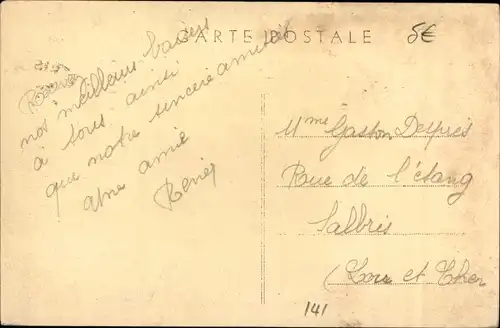 CARTE POSTALE
5€
Recevez
nos meilleurs baisers
à tous ainsi
que notre sincère amitié
Une amie
Renée
Mme Gaston Després
Rue de l'étang
Salbris
(Loir et Cher
141